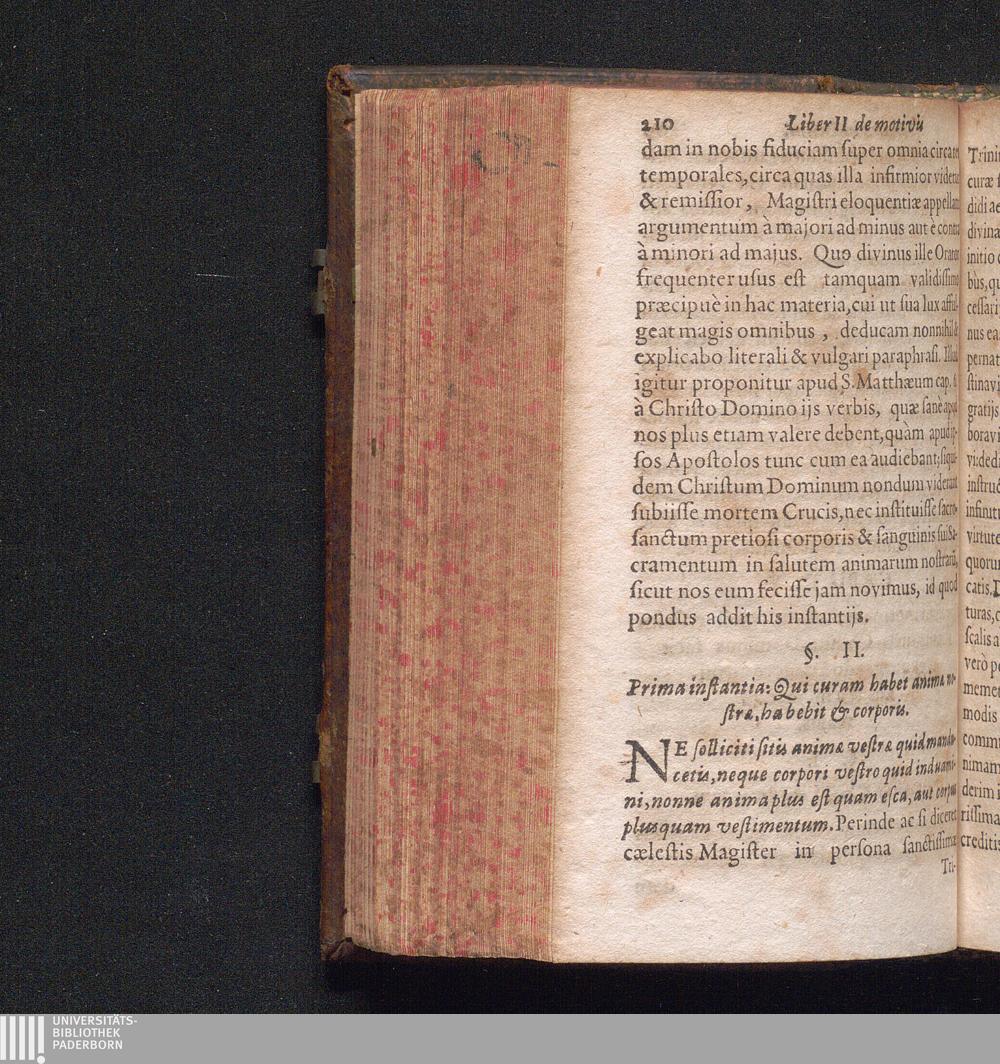 210 Liber II de motivis
dam in nobis fiduciam ſuper omnia circa
temporales, circa quas illa infirmior
& remiſſior, Magiſtri eloquentiæ
argumentum à majori ad minus aut è
à minori ad majus. Quo divinus ille
frequenter uſus eſt tamquam validiſſimo
præcipuè in hac materia, cui ut ſua lux afful-
geat magis omnibus, deducam
explicabo literali & vulgari paraphraſi.
igitur proponitur apud S. Matthæum cap.
à Chriſto Domino ijs verbis, quæ ſanè
nos plus etiam valere debent, quàm apud ip-
ſos Apoſtolos tunc cum ea audiebant; ſiqui-
dem Chriſtum Dominum nondum viderant
ſubiiſſe mortem Crucis, nec inſtituiſſe ſacro-
ſanctum pretioſi corporis & ſanguinis ſui Sa-
cramentum in ſalutem animarum noſtrarũ,
ſicut nos eum feciſſe jam novimus, id quod
pondus addit his inſtantijs.
§. II.
Prima inſtantia: Qui curam habet animæ no-
ſtræ, habebit & corporis.
NE ſolliciti ſitis animæ veſtræ quid mandu-
cetis, neque corpori veſtro quid induami-
ni, nonne anima plus eſt quam eſca, aut corpus
plus quam veſtimentum. Perinde ac ſi diceret
cæleſtis Magiſter in perſona ſanctiſſimæ
Tri-
curæ
didi
divina
initio
ceſſari
nus ea
pernat
gratijs
inſtruc
virtute
catis.
turas,
ſcalis a
verò
modis
nimam
derim i
UNIVERSITÄTS-
BIBLIOTHEK
PADERBORN